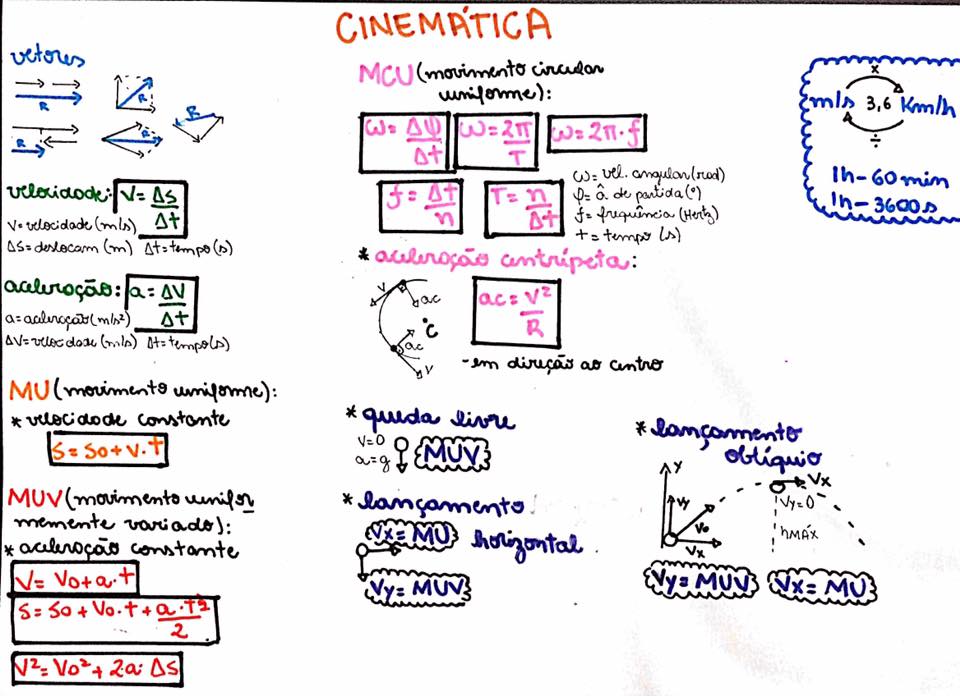 CINEMÁTICA
vetores
R
R
R
R
R
velocidade: V = ΔS/Δt
V = velocidade (m/s)
ΔS = deslocam (m) Δt = tempo (s)
aceleração: a = ΔV/Δt
a = aceleração (m/s²)
ΔV = velocidade (m/s) Δt = tempo (s)
MU (movimento uniforme):
* velocidade constante
S = So + V · t
MUV (movimento unifor
memente variado):
* aceleração constante
V = Vo + a · t
S = So + Vo · t + a · t²/2
V² = Vo² + 2·a· ΔS
MCU (movimento circular
uniforme):
ω = Δψ/Δt ω = 2π/T ω = 2π · f
f = Δt/n T = n/Δt
ω = vel. angular (rad)
φ = â de partida (°)
f = frequência (Hertz)
t = tempo (s)
* aceleração centrípeta:
V
ac
°C
ac
V
ac = V²/R
- em direção ao centro
* queda livre
V = 0
a = g
MUV
* lançamento
horizontal
Vx = MU
Vy = MUV
* lançamento
oblíquio
Y
Vy
Vo
Vx
Vx
Vy = 0
hMÁX
Vy = MUV Vx = MU
x
m/s 3,6 Km/h
÷
1h - 60 min
1h - 3600 s